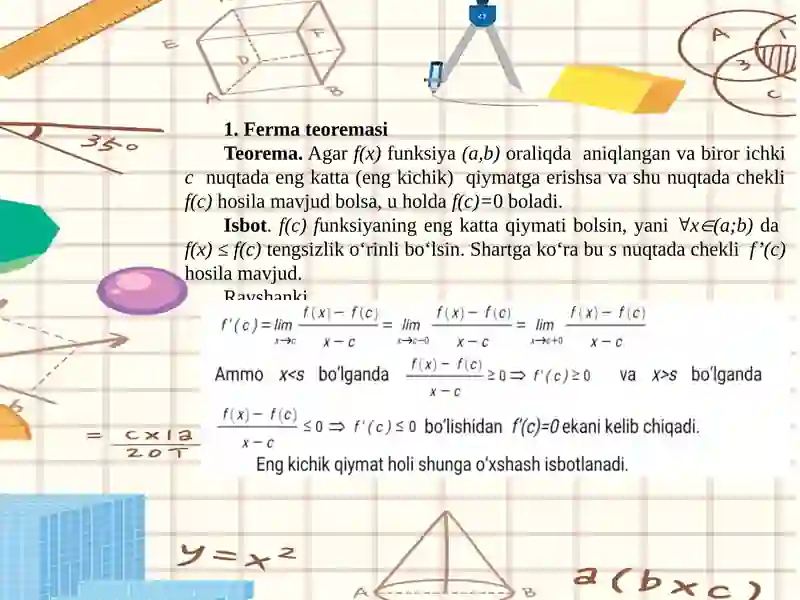 E
D
F
A
B
A
1
3
C
35°
1. Ferma teoremasi
Teorema. Agar f(x) funksiya (a,b) oraliqda aniqlangan va biror ichki
c nuqtada eng katta (eng kichik) qiymatga erishsa va shu nuqtada chekli
f(c) hosila mavjud bolsa, u holda f(c)=0 boladi.
Isbot. f(c) funksiyaning eng katta qiymati bolsin, yani ∀x∈(a;b) da
f(x) ≤ f(c) tengsizlik o‘rinli bo‘lsin. Shartga ko‘ra bu s nuqtada chekli f’(c)
hosila mavjud.
Ravshanki
f'(c)=lim x→c f(x)− f(c) / x − c = lim x→c−0 f(x)− f(c) / x − c = lim x→c+0 f(x)− f(c) / x − c
Ammo x<s bo‘lganda f(x)− f(c) / x − c ≥ 0 ⇒ f'(c) ≥ 0 va x>s bo‘lganda
f(x)− f(c) / x − c ≤ 0 ⇒ f'(c) ≤ 0 bo‘lishidan f’(c)=0 ekani kelib chiqadi.
Eng kichik qiymat holi shunga o‘xshash isbotlanadi.
y = x²
A
B
a(bxc)